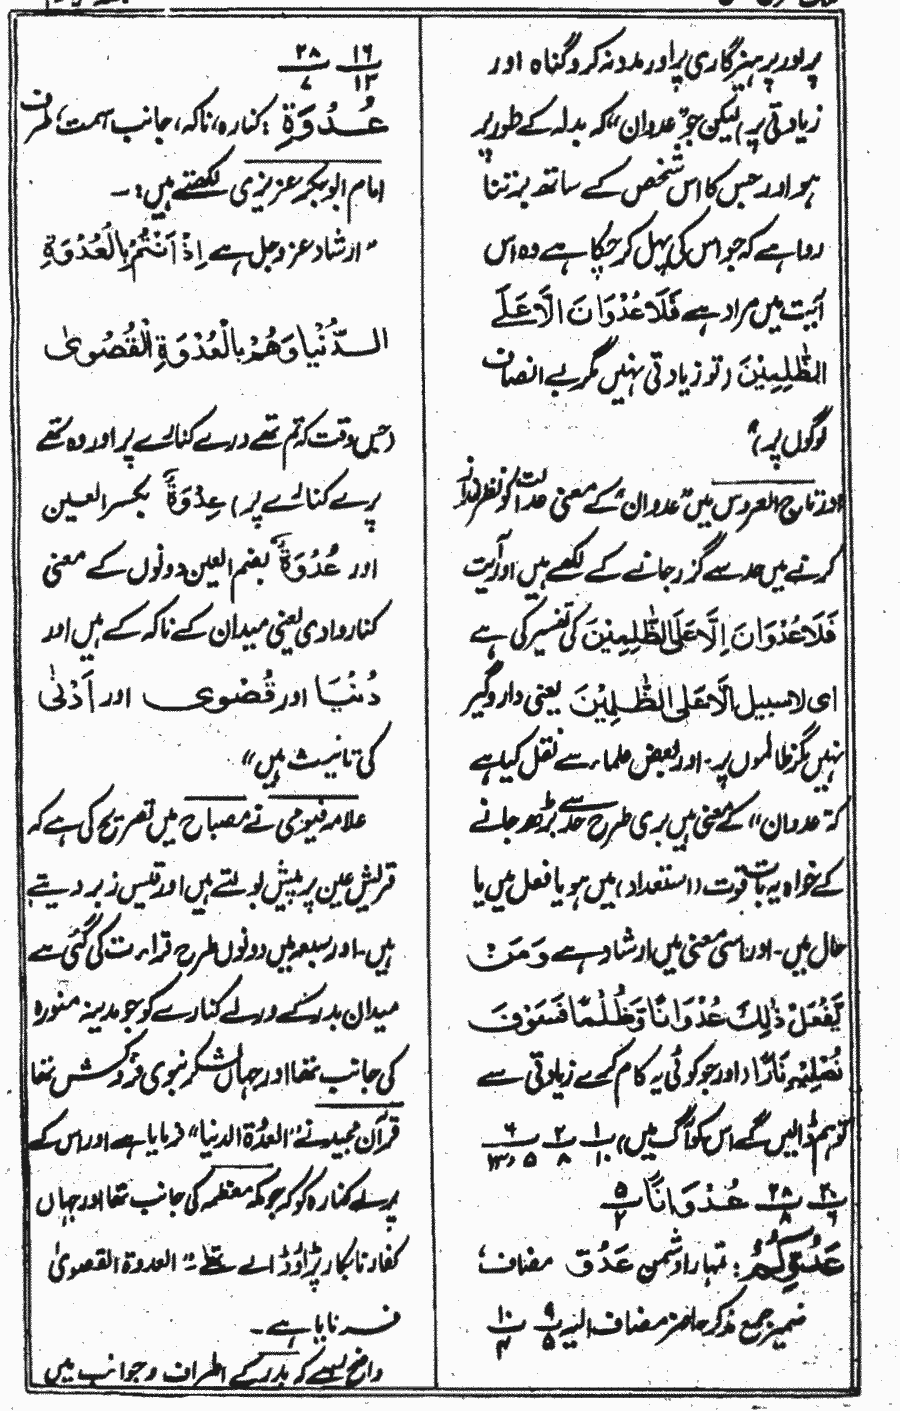 پر اور پرہیزگاری پر اور مدد نہ کرو گناہ اور
زیادتی پر) لیکن جو "عدوان" کہ بدلہ کے طور پر
ہو اور جس کا اس شخص کے ساتھ برتنا
روا ہے کہ جو اس کی پہل کر چکا ہے وہ اس
آیت میں مراد ہے فَلَا عُدْوَانَ اِلَّا عَلَی
الظّٰلِمِیْنَ (تو زیادتی نہیں مگر بے انصاف
لوگوں پر)
اور تاج العروس میں "عدوان" کے معنی عدالت کو نظر انداز
کرنے میں حد سے گزر جانے کے لکھے ہیں اور آیت
فَلَا عُدْوَانَ اِلَّا عَلَی الظّٰلِمِیْنَ کی تفسیر کی ہے
ای لا سبیل اِلَّا عَلَی الظّٰلِمِیْنَ یعنی دار و گیر
نہیں مگر ظالموں پر۔ اور بعض علماء سے نقل کیا ہے
کہ "عدوان" کے معنی ہیں بری طرح حد سے بڑھ جانے
کے خواہ یہ بات قوت (استعداد) میں ہو یا فعل میں یا
حال میں۔ اور اسی معنی میں ارشاد ہے وَمَنْ
یَّفْعَلْ ذٰلِکَ عُدْوَانًا وَّظُلْمًا فَسَوْفَ
نُصْلِیْہِ نَارًا (اور جو کوئی یہ کام کرے زیادتی سے
تو ہم ڈالیں گے اس کو آگ میں) ۱/۱۰ ۲/۸ ۶/۵ و ۱۳
۲۰/۶ ۲۸/۸ عُدْوَانًا ۵/۲
عَدُوَّکُمْ : تمہارا دشمن عَدُوّ مضاف،
ضمیر جمع مذکر حاضر مضاف الیہ ۹/۵ ۱۰/۳
۱۶/۱۳ ۲۸/۷
عُدْوَةِ : کنارہ، ناکہ، جانب سمت، طرف
امام ابوبکر عزیزی لکھتے ہیں :۔
"ارشاد عز و جل ہے اِذْ اَنْتُمْ بِالْعُدْوَةِ
الدُّنْیَا وَهُمْ بِالْعُدْوَةِ الْقُصْوٰی
(جس وقت کہ تم تھے ورے کنارے پر اور وہ تھے
پرے کنارے پر) عِدْوَةٌ بکسر العین
اور عُدْوَةٌ بضم العین دونوں کے معنی
کنارِ وادی یعنی میدان کے ناکہ کے ہیں اور
دُنْیَا اور قُصْوٰی اور اَدْنٰی
کی تانیث ہیں"
علامہ فیومی نے مصباح میں تصریح کی ہے کہ
قریش عین پر پیش بولتے ہیں اور قیس زیر دیتے
ہیں۔ اور سبعہ میں دونوں طرح قراءت کی گئی ہے
میدان بدر کے ورلے کنارے کو جو مدینہ منورہ
کی جانب تھا اور جہاں لشکر نبوی فروکش تھا
قرآن مجید نے "العدوۃ الدنیا" فرمایا ہے اور اس کے
پرلے کنارہ کو کہ جو مکہ معظمہ کی جانب تھا اور جہاں
کفار نابکار پڑاؤ ڈالے تھے "العدوۃ القصویٰ
فرمایا ہے۔
واضح رہے کہ بدر کے اطراف و جوانب میں